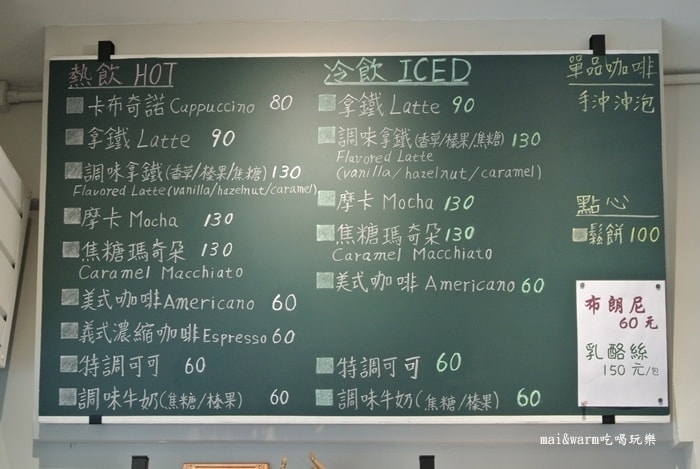 熱飲 HOT
卡布奇諾 Cappuccino 80
拿鐵 Latte 90
調味拿鐵(香草/榛果/焦糖) 130
Flavored Latte (vanilla/hazelnut/caramel)
摩卡 Mocha 130
焦糖瑪奇朵 130
Caramel Macchiato
美式咖啡 Americano 60
義式濃縮咖啡 Espresso 60
特調可可 60
調味牛奶(焦糖/榛果) 60
冷飲 ICED
拿鐵 Latte 90
調味拿鐵(香草/榛果/焦糖) 130
Flavored Latte
(vanilla/hazelnut/caramel)
摩卡 Mocha 130
焦糖瑪奇朵 130
Caramel Macchiato
美式咖啡 Americano 60
特調可可 60
調味牛奶(焦糖/榛果) 60
單品咖啡
手沖沖泡
點心
鬆餅 100
布朗尼
60元
乳酪絲
150元/包
mai&warm吃喝玩樂